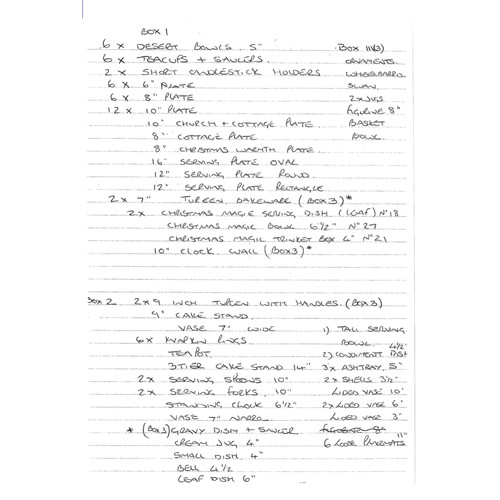 BOX 1
6 x DESERT BOWLS 5"
6 x TEACUPS + SAUCERS.
2 x SHORT CANDLESTICK HOLDERS
6 x 6" PLATE
6 x 8" PLATE
12 x 10" PLATE
10" CHURCH + COTTAGE PLATE.
8" COTTAGE PLATE
8" CHRISTMAS WARMTH PLATE.
16" SERVING PLATE OVAL
12" SERVING PLATE ROUND.
12" SERVING PLATE RECTANGLE
2 x 7" TUREEN BAKEWARE (BOX 3)*
2x CHRISTMAS MAGIC SERVING DISH. (LEAF) Nº18
CHRISTMAS MAGIC BOWL 6½" Nº27
CHRISTMAS MAGIC TRINKET BOX 4" Nº21
10" CLOCK WALL (BOX3)*
BOX
ORNAMENTS.
WHEELBARROW
SWAN.
2 x JUGS
figurine 8"
BASKET
BOWL.
BOX 2 2 x 9 INCH TUREEN WITH HANDLES. (BOX 3)
9" CAKE STAND.
VASE 7" WIDE
6x NAPKIN RINGS.
TEAPOT.
3 TIER CAKE STAND 14"
2x SERVING SPOONS 10"
2x SERVING FORKS. 10"
STANDING CLOCK 6½"
VASE 7" NARROW
* (BOX 3) GRAVY DISH + SAUCER
CREAM JUG 4"
SMALL DISH. 4"
BELL 4½
LEAF DISH 6"
1) TALL SERVING
BOWL. 4½"
2) CONDIMENT DISH
3x ASHTRAY. 5"
2x SHELLS 3½"
LIDED VASE 10"
2x LIDED VASE 6"
LIDED VASE 3"
figurine 8"
11"
6 LOOSE PLACEMATS